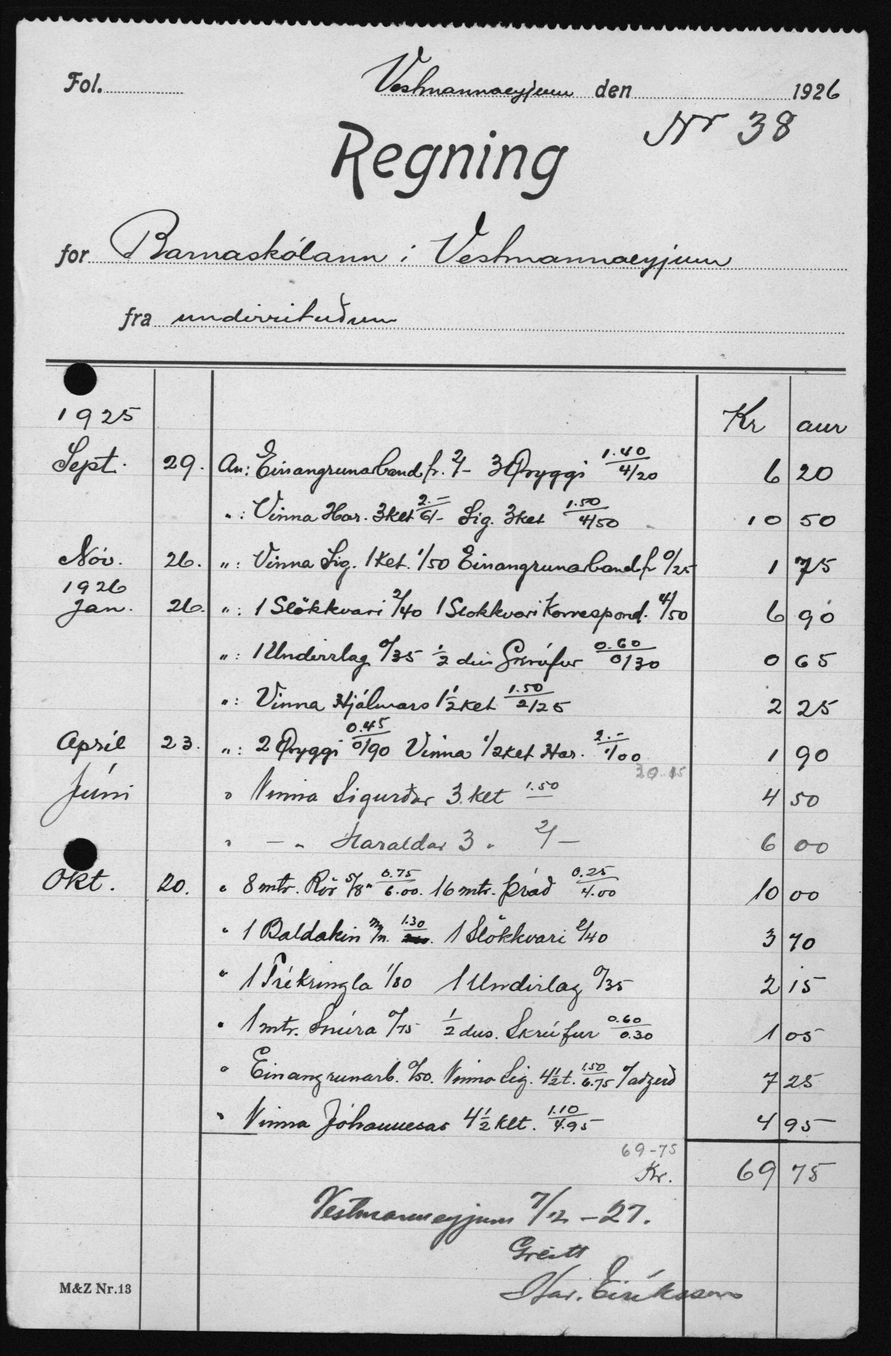 Fol. Vestmannaeyjum den 1926
Nr 38
Regning
for Barnaskólann i Vestmannaeyjum
fra undirrituðum
1925 Kr aur
Sept. 29. An: Einangrunarband fr. 2/- 3 Öryggi 1.40 4/20 6 20
„: Vinna Har. 3 ket 2.- 6/- Sig. 3 ket 1.50 4/50 10 50
Nóv. 26. „: Vinna Sig. 1 ket. 1/50 Einangrunarband fr 0/25 1 75
1926
Jan. 26. „: 1 Slökkvari 2/40 1 Slokkvari Korrespond. 4/50 6 90
„: 1 Undirlag 0/35 1/2 dus Skrúfur 0.60 0/30 0 65
„: Vinna Hjálmars 1 1/2 ket 1.50 2/25 2 25
Apríl 23. „: 2 Öryggi 0.45 0/90 Vinna 1/2 ket Har. 2.- 1/00 1 90
Júni „ Vinna Sigurðar 3 ket 1.50 4 50
„ — „ Haraldar 3 „ 2/- 6 00
Okt. 20. „ 8 mtr. Rör 5/8" 0.75 6.00 16 mtr. þráð 0.25 4.00 10 00
„ 1 Baldakin m/n. 1.30 1 Slökkvari 2/40 3 70
„ 1 Trékringla 1/80 1 Undirlag 0/35 2 15
„ 1 mtr. Snúra 0/75 1/2 dus. Skrúfur 0.60 0.30 1 05
„ Einangrunarb. 0/50. Vinna Sig. 4 1/2 t. 1.50 6.75 7 25
„ Vinna Jóhannesar 4 1/2 klt. 1.10 4.95 4 95
69-75
Kr. 69 75
Vestmannaeyjum 7/12 - 27.
Greitt
Har. Eiríksson
M&Z Nr.13